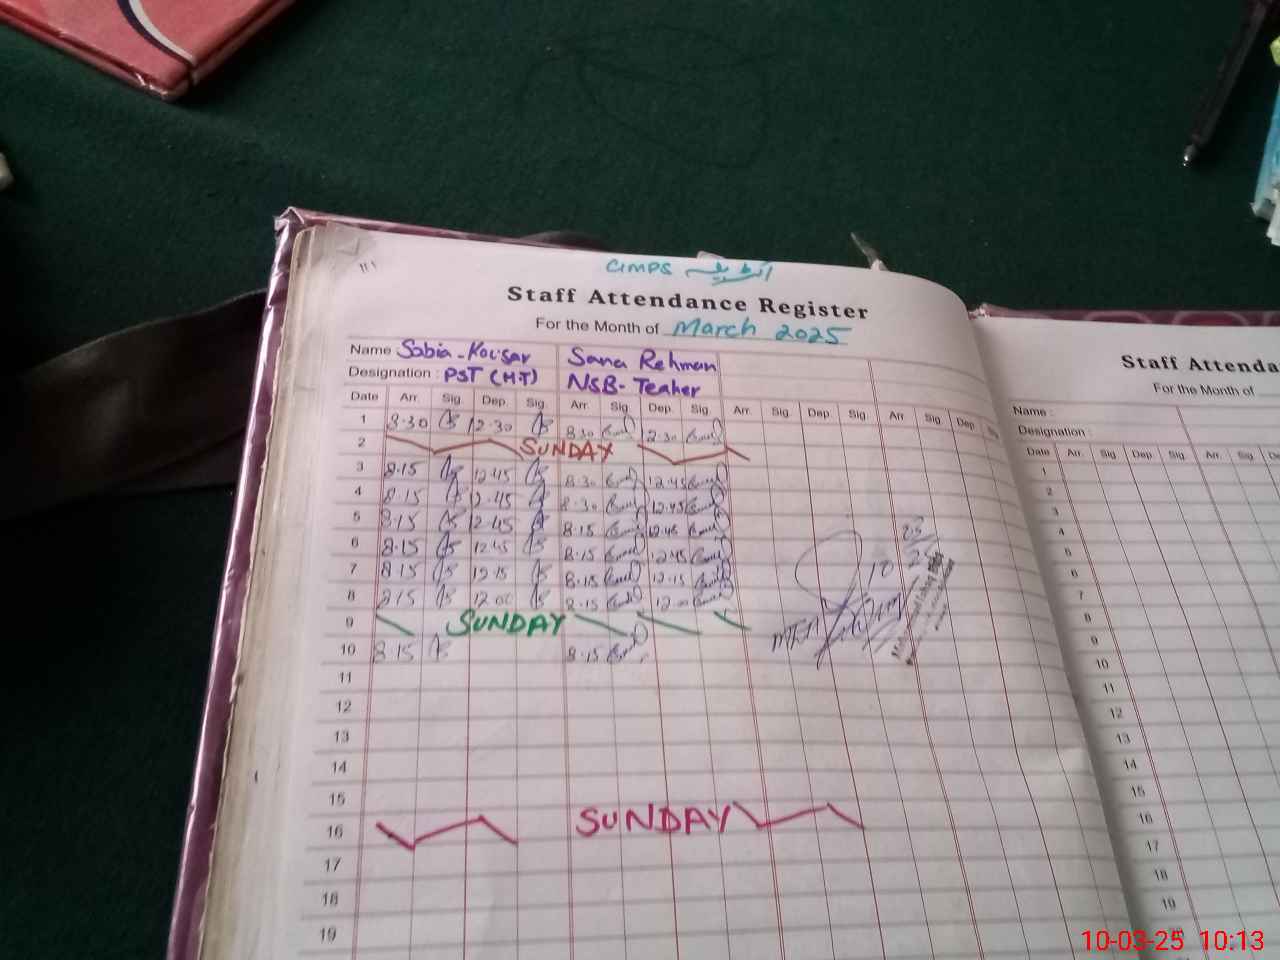 GMPS
Staff Attendance Register
For the Month of March 2025
Name Sobia-Kousar Sana Rehman
Designation : PST (H.T) NSB-Teaher
Date Arr. Sig. Dep. Sig. Arr. Sig. Dep. Sig. Arr. Sig. Dep. Sig. Arr. Sig. Dep. Sig.
1 8.30 12.30 8.30 12.30
2 SUNDAY
3 8.15 12.45 8.30 12.45
4 8.15 12.45 8.30 12.45
5 8.15 12.45 8.15 12.45
6 8.15 12.45 8.15 12.45
7 8.15 12.15 8.15 12.15
8 8.15 12.00 8.15 12.00
9 SUNDAY
10 8.15 8.15
11
12
13
14
15
16 SUNDAY
17
18
19
10
Staff Attenda
For the Month of
Name :
Designation :
Date Arr. Sig. Dep. Sig. Arr. Sig. De
1
2
3
4
5
6
7
8
9
10
11
12
13
14
15
16
17
18
19
10-03-25 10:13